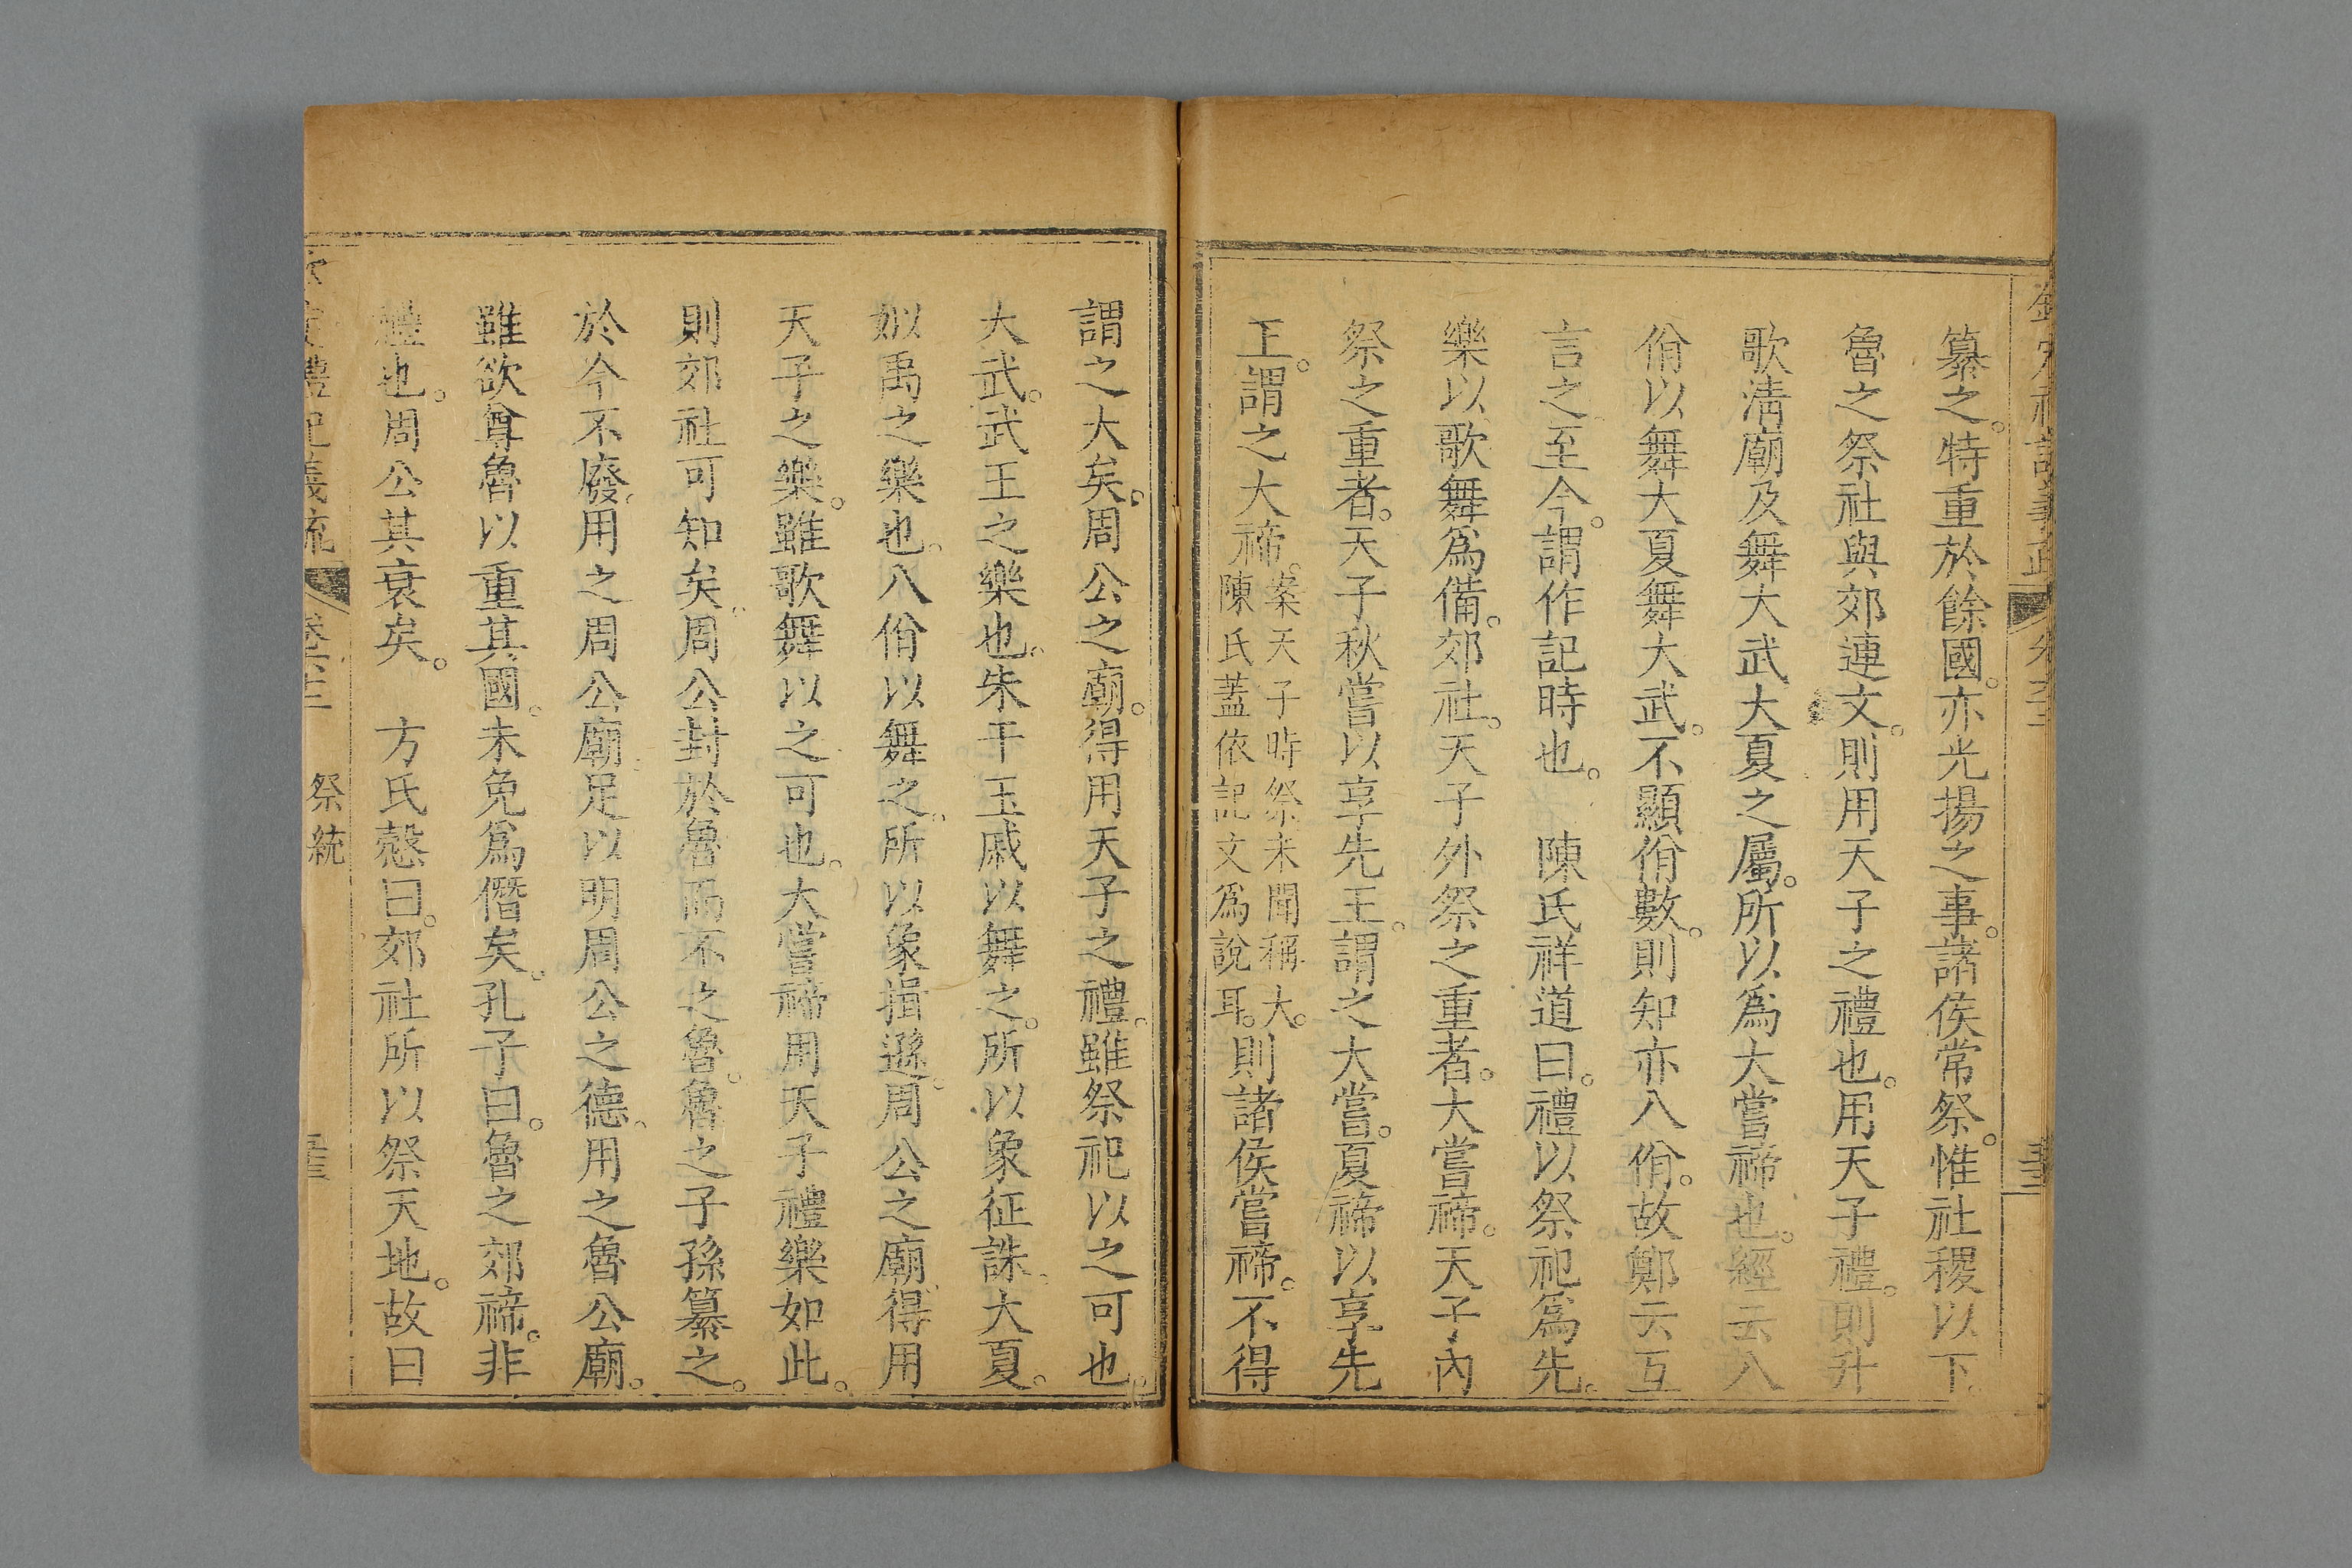 纂之。特重於餘國。亦光揚之事。諸侯常祭。惟社稷以下。
魯之祭社與郊連文。則用天子之禮也。用天子禮。則升
歌淸廟及舞大武大夏之屬。所以爲大嘗禘也。經云八
佾以舞大夏舞大武。不顯佾數。則知亦八佾。故鄭云互
言之至今。謂作記時也。　陳氏祥道曰。禮以祭祀爲先。
樂以歌舞爲備。郊社。天子外祭之重者。大嘗禘。天子內
祭之重者。天子秋嘗以享先王。謂之大嘗。夏禘以享先
王。謂之大禘。案天子時祭未聞稱大。陳氏蓋依記文爲說耳。則諸侯嘗禘。不得
謂之大矣。周公之廟。得用天子之禮。雖祭祀以之可也。
大武。武王之樂也。朱干玉戚以舞之。所以象征誅。大夏。
姒禹之樂也。八佾以舞之。所以象揖遜。周公之廟得用
天子之樂。雖歌舞以之可也。大嘗禘用天子禮樂如此。
則郊社可知矣。周公封於魯而不之魯。魯之子孫纂之。
於今不廢。用之周公廟。足以明周公之德。用之魯公廟。
雖欲尊魯以重其國。未免爲僭矣。孔子曰。魯之郊禘。非
禮也。周公其衰矣。　方氏慤曰。郊社所以祭天地。故曰
禮記義疏
祭統